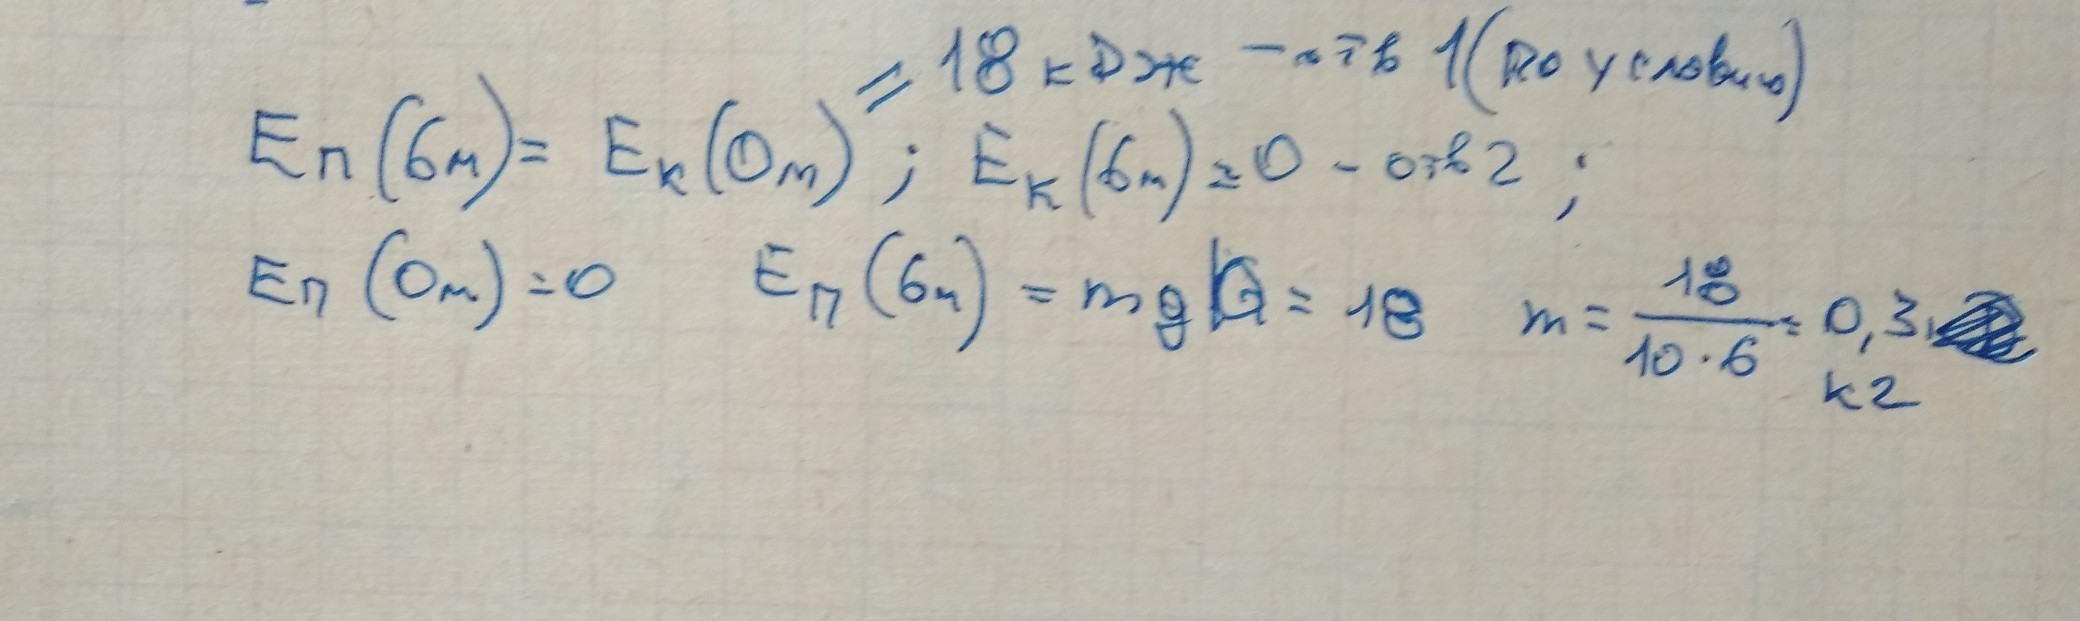 = 18 кДж - отв 1 (по условию)
Eп (6м) = Eк (0м) ; Eк (6м) = 0 - отв 2 ;
Eп (0м) = 0 Eп (6м) = mgh = 18 m = 18/10·6 = 0,3
кг